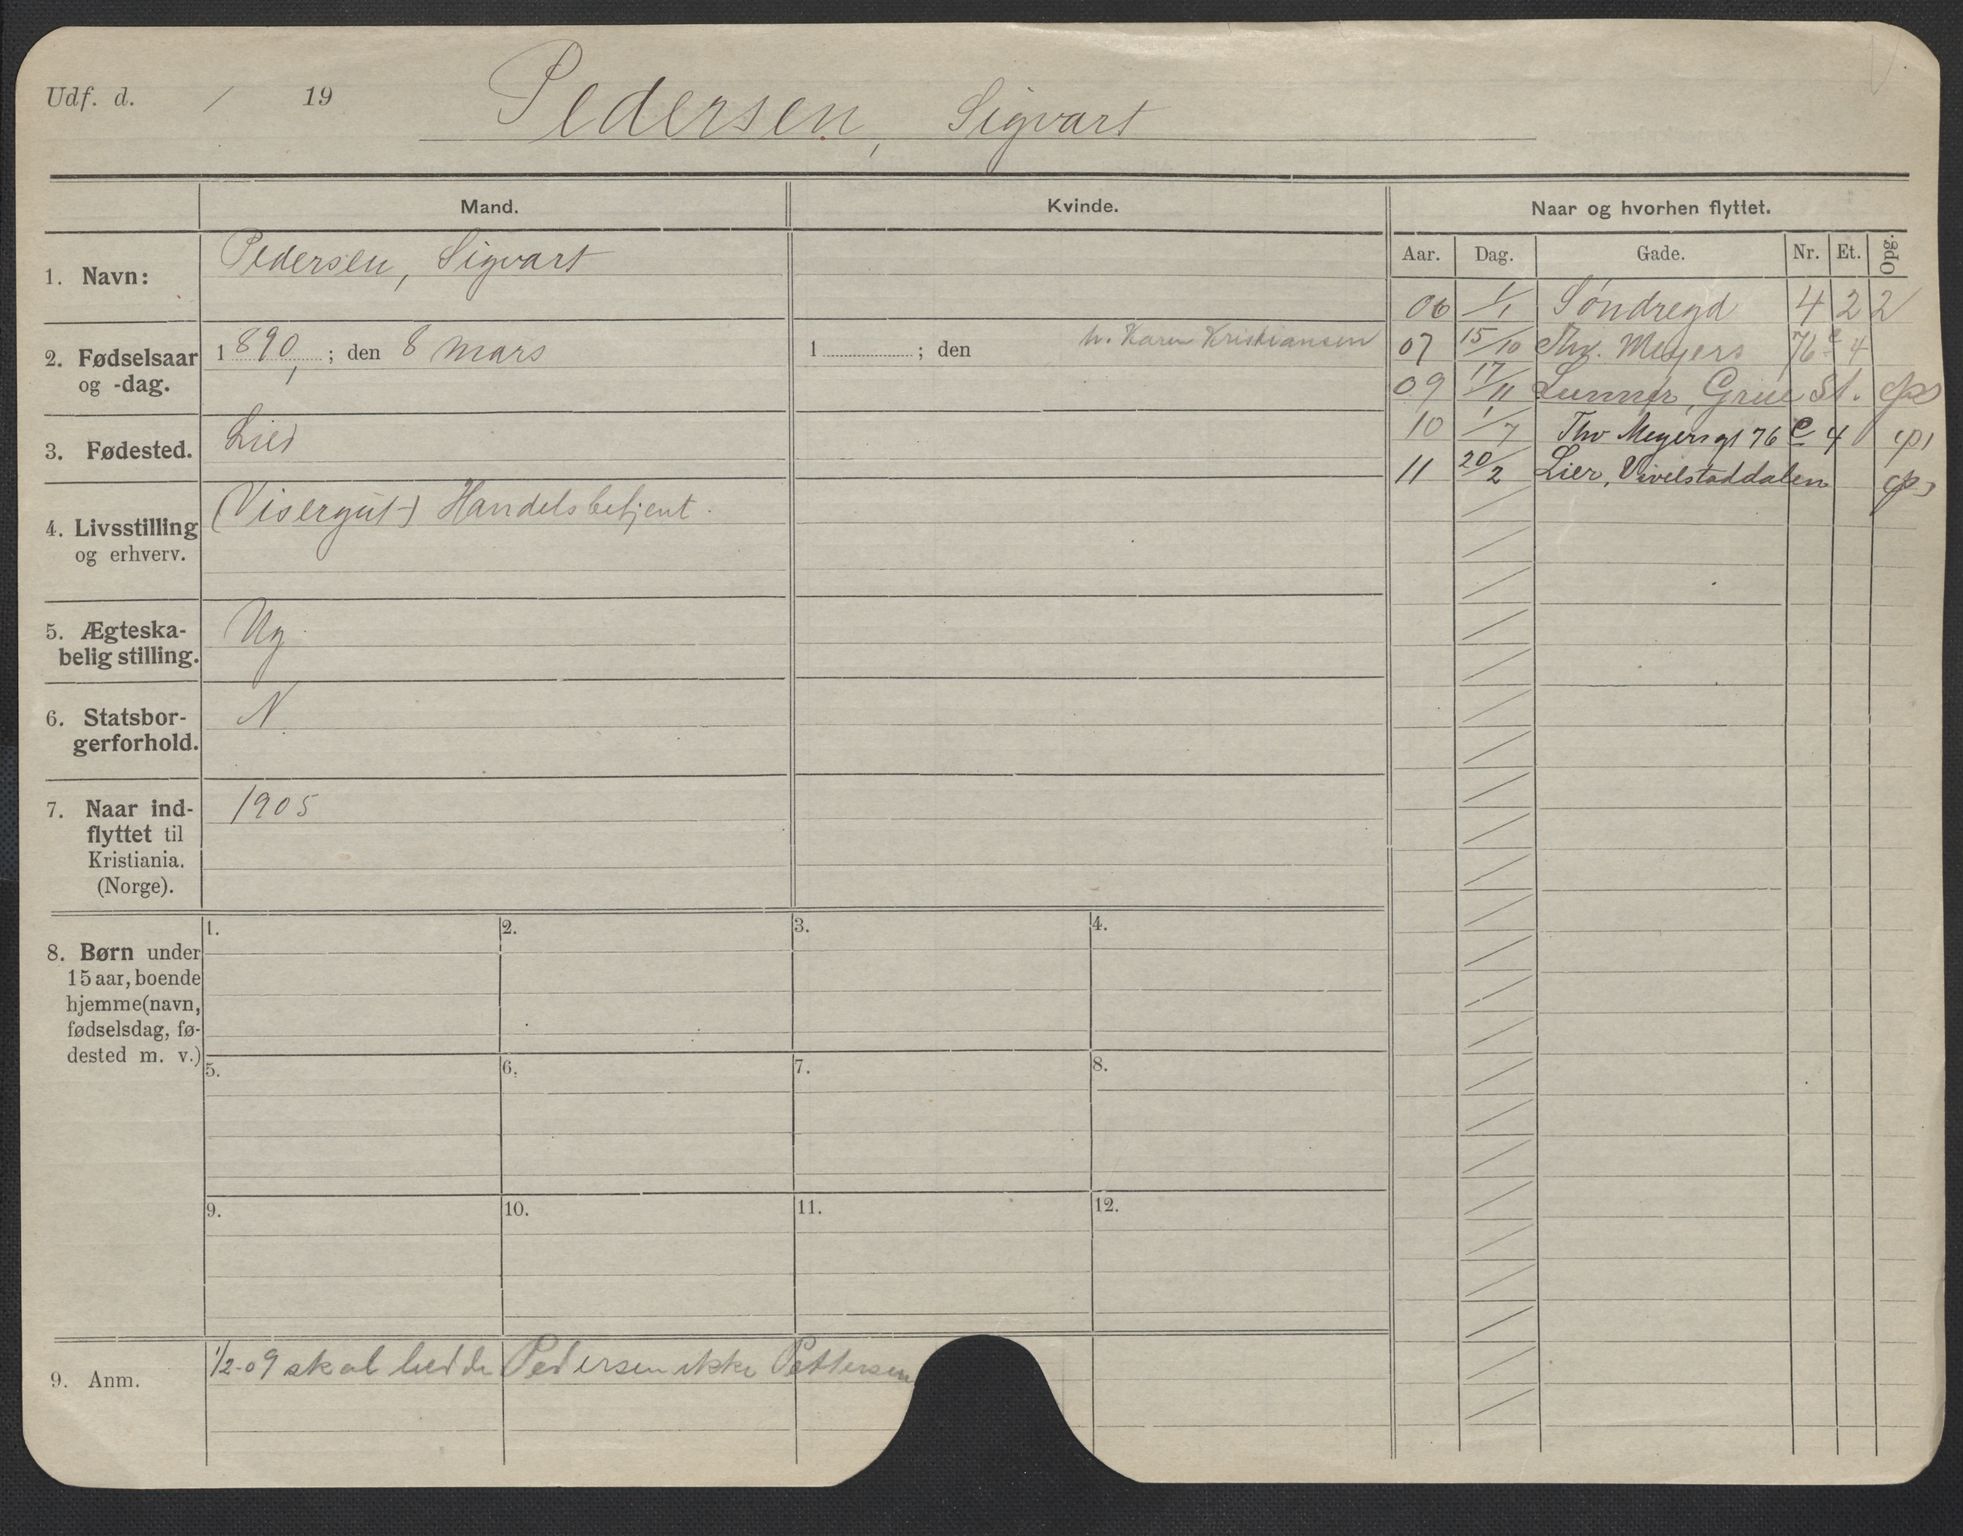 Udf. d. / 19 Pedersen, Sigvart
Mand. Kvinde. Naar og hvorhen flyttet.
Aar. Dag. Gade. Nr. Et. Opg.
1. Navn: Pedersen, Sigvart
2. Fødselsaar og -dag. 1890, ; den 8 mars
1 ; den h. Karen Kristiansen
3. Fødested. Lier
4. Livsstilling og erhverv. (Visergut) Handelsbetjent.
5. Ægteska-
belig stilling. Ug
6. Statsbor-
gerforhold. N
7. Naar ind-
flyttet til
Kristiania.
(Norge). 1905
06 1/1 Søndregd 4 2 2
07 15/10 Thv. Meyers 76 c 4
09 17/11 Lunner, Grue St.
10 1/7 Thv Meyersgt 76 c 4
11 20/2 Lier, Vivelstaddalen
8. Børn under
15 aar, boende
hjemme (navn,
fødselsdag, fø-
dested m. v.)
1. 2. 3. 4.
5. 6. 7. 8.
9. 10. 11. 12.
9. Anm. 1/2-09 skal hedde Pedersen ikke Pettersen